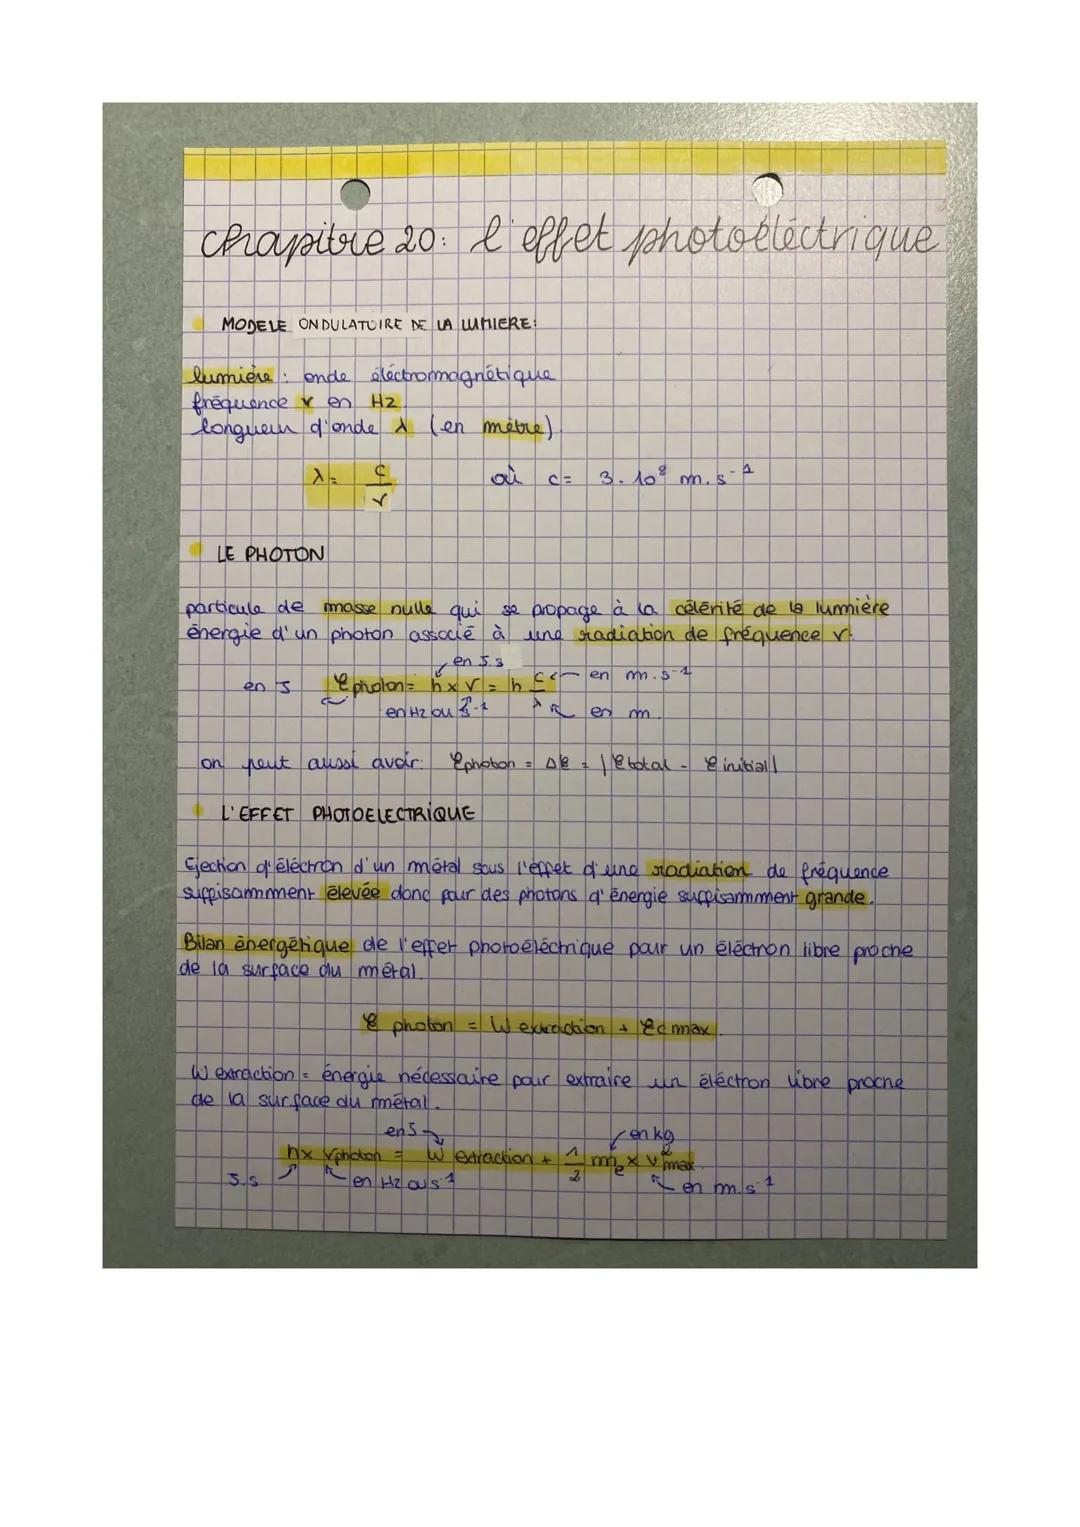 chapitre 20: l'effet photoéléctrique
MODELE ONDULATOIRE DE LA LUMIERE:
lumière : onde éléctromagnétique
fréquence ν en Hz
longueur d'onde λ (en mètre)
λ = c/ν où c = 3.10⁸ m.s⁻¹
LE PHOTON
particule de masse nulle qui se propage à la célérité de la lumière
énergie d'un photon associé à une radiation de fréquence ν:
en J.s
en J Ephoton = h x ν = h c/λ en m.s⁻¹
en Hz ou s⁻¹ en m.
on peut aussi avoir: Ephoton = ΔE = |E total - E initial|
L'EFFET PHOTOELECTRIQUE
Ejection d'éléctron d'un métal sous l'effet d'une radiation de fréquence
suffisammment élevée donc pour des photons d'énergie suffisammment grande.
Bilan énergétique de l'effet photoéléctrique pour un éléctron libre proche
de la surface du métal.
E photon = W extraction + Ec max.
W extraction = énergie nécessaire pour extraire un éléctron libre proche
de la surface du métal.
en J en kg
h x ν photon = W extraction + 1/2 me x v²max.
J.s en Hz ou s⁻¹ en m.s⁻¹